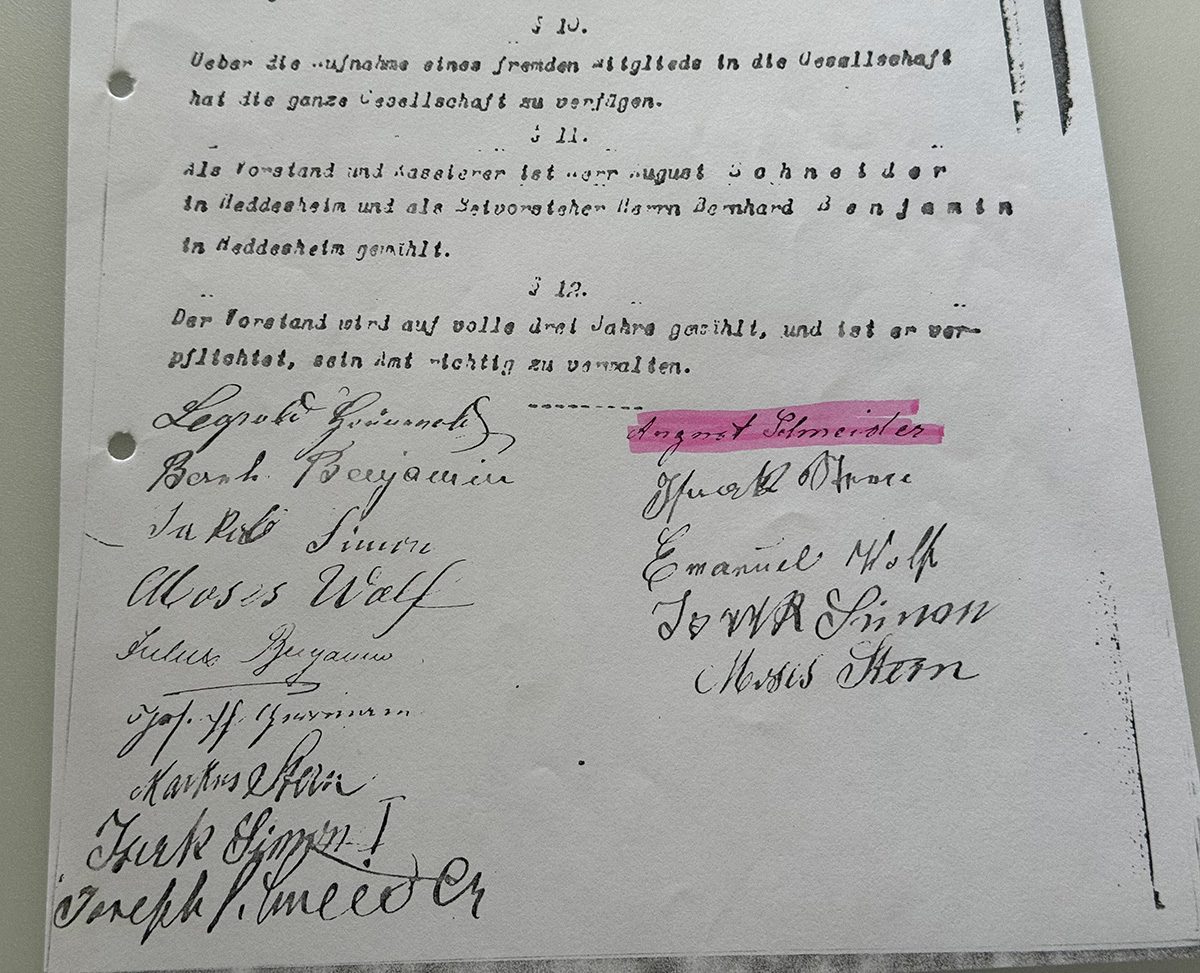 § 10.
Ueber die Aufnahme eines fremden Mitglieds in die Gesellschaft
hat die ganze Gesellschaft zu verfügen.
§ 11.
Als Vorstand und Kassierer ist Herr August Schneider
in Heddesheim und als Beivorsteher Herrn Bernhard Benjamin
in Heddesheim gewählt.
§ 12.
Der Vorstand wird auf volle drei Jahre gewählt, und ist er ver-
pflichtet, sein Amt richtig zu verwalten.
Leopold
August Schneider
Bernh. Benjamin
Isaak
Jakob Simon
Emanuel Wolf
Moses Wolf
Isaak Simon
Julius Benjamin
Moses Stern
Jos.
Markus Stern
Isack Simon I
Joseph Schneider